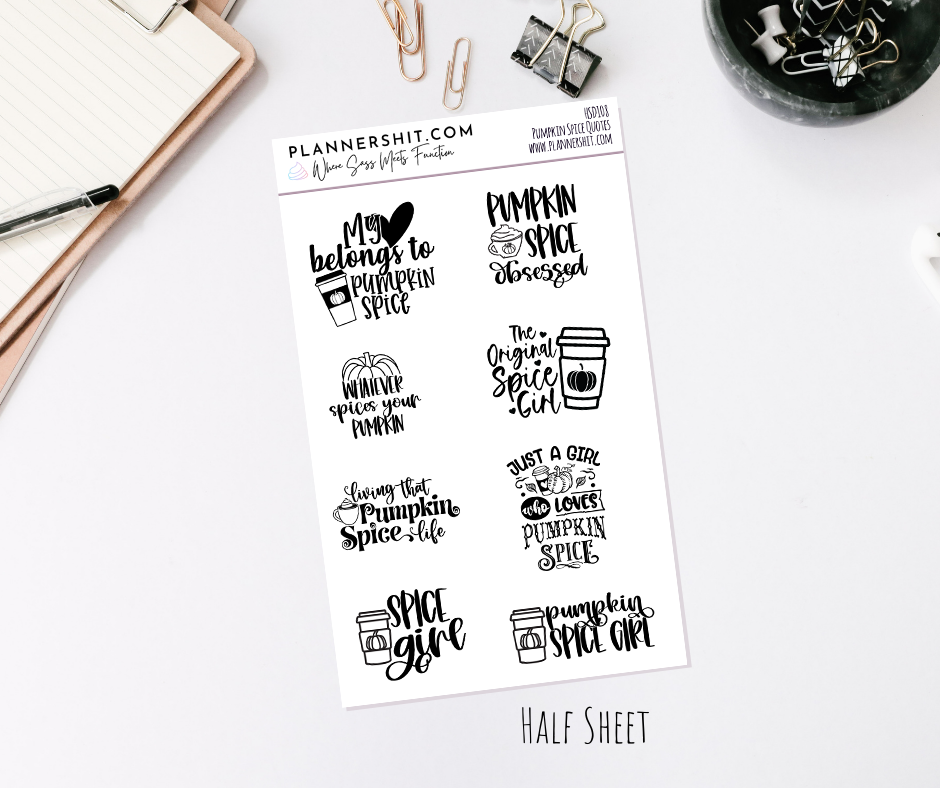 PLANNERSHIT.COM
Where Sass Meets Function
HSD108
Pumpkin Spice Quotes
www.plannershit.com
My
belongs to
PUMPKIN
SPICE
PUMPKIN
SPICE
obsessed
WHATEVER
spices your
PUMPKIN
The
Original
Spice
Girl
living that
Pumpkin
Spice life
JUST A GIRL
who LOVES
PUMPKIN
SPICE
SPICE
girl
pumpkin
SPICE GIRL
Half Sheet